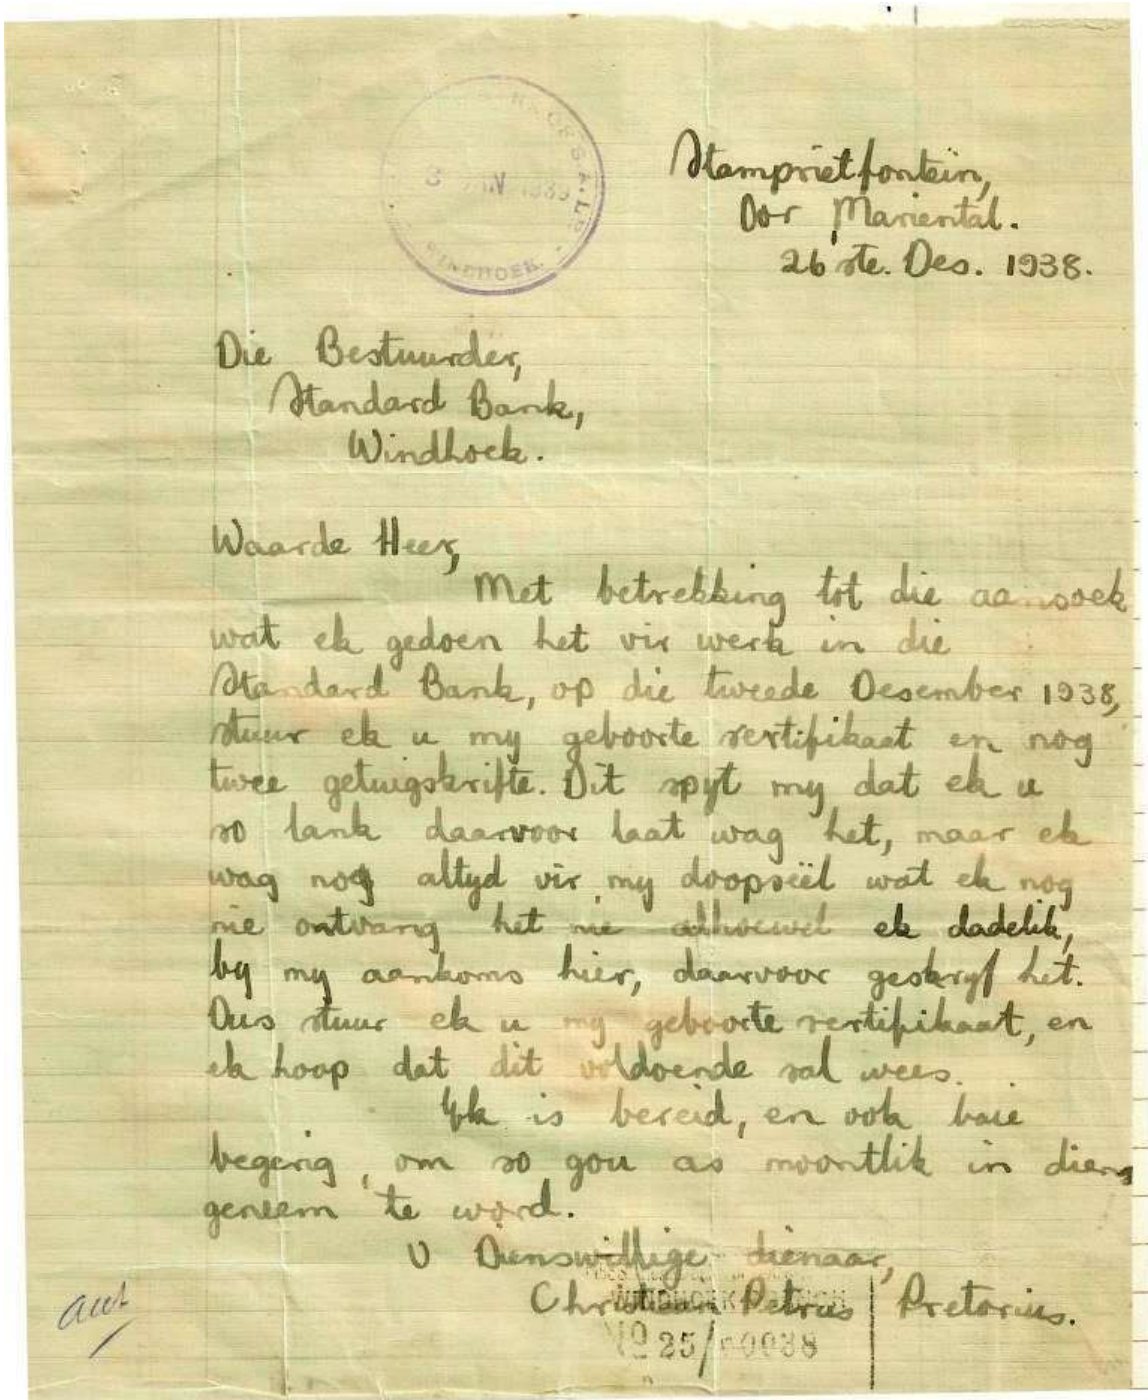 Stamprietfontein,
Oor Mariental.
26ste. Des. 1938.
WINDHOEK.
Die Bestuurder,
Standard Bank,
Windhoek.
Waarde Heer,
Met betrekking tot die aansoek
wat ek gedoen het vir werk in die
Standard Bank, op die tweede Desember 1938,
stuur ek u my geboorte sertifikaat en nog
twee getuigskrifte. Dit spyt my dat ek u
so lank daarvoor laat wag het, maar ek
wag nog altyd vir my doopseël wat ek nog
nie ontvang het nie alhoewel ek dadelik,
by my aankoms hier, daarvoor geskryf het.
Dus stuur ek u my geboorte sertifikaat, en
ek hoop dat dit voldoende sal wees.
Ek is bereid, en ook baie
begerig, om so gou as moontlik in diens
geneem te word.
U Dienswillige dienaar,
Christiaan Petrus Pretorius.
No 25/